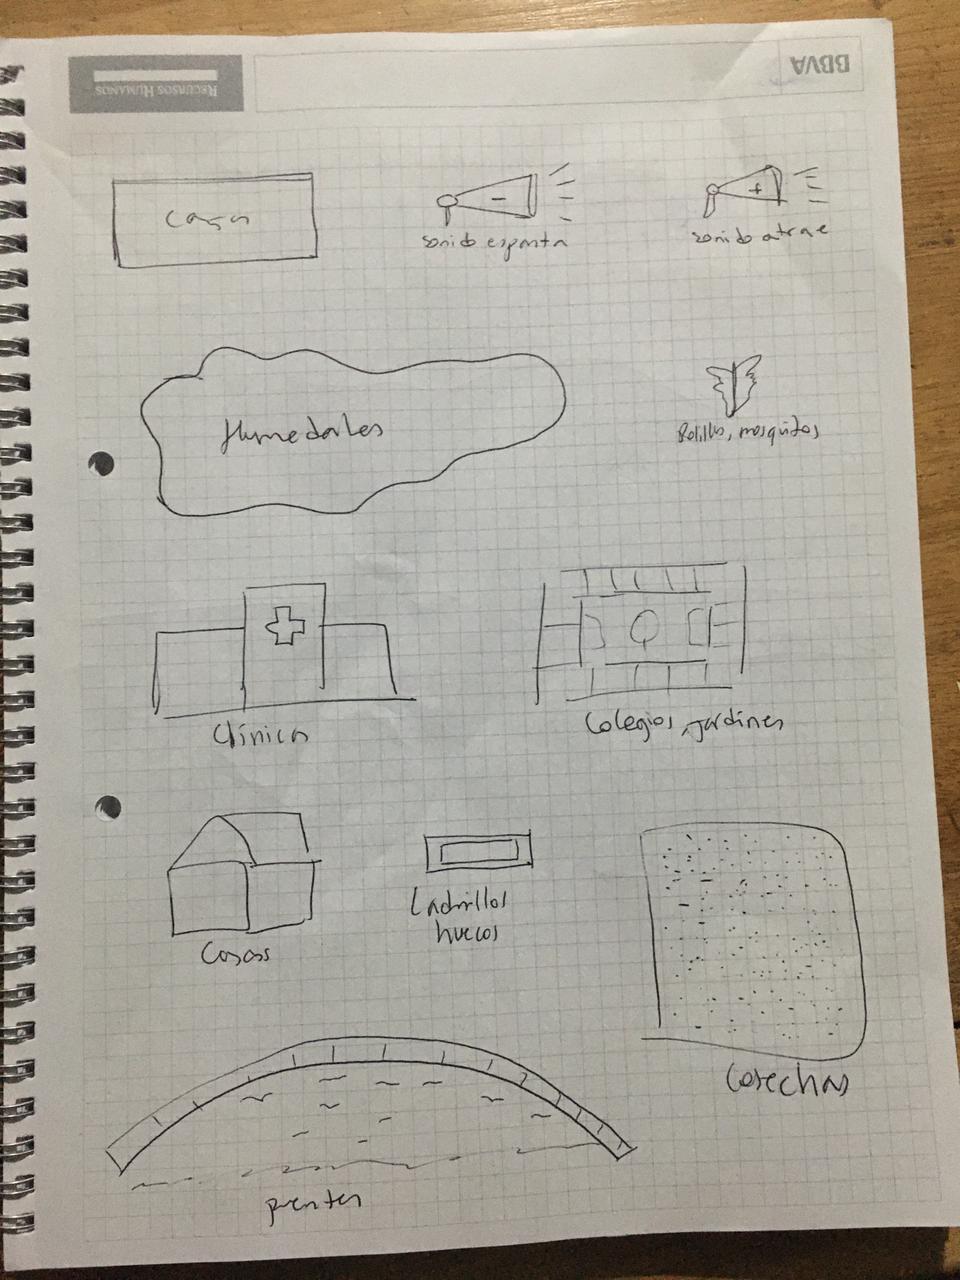 BBVA
RECURSOS HUMANOS
Casa
sonido espanta
sonido atrae
Humedales
Polillas, mosquitos
Clínica
Colegios, jardines
Casas
Ladrillos
huecos
Cosechas
puentes